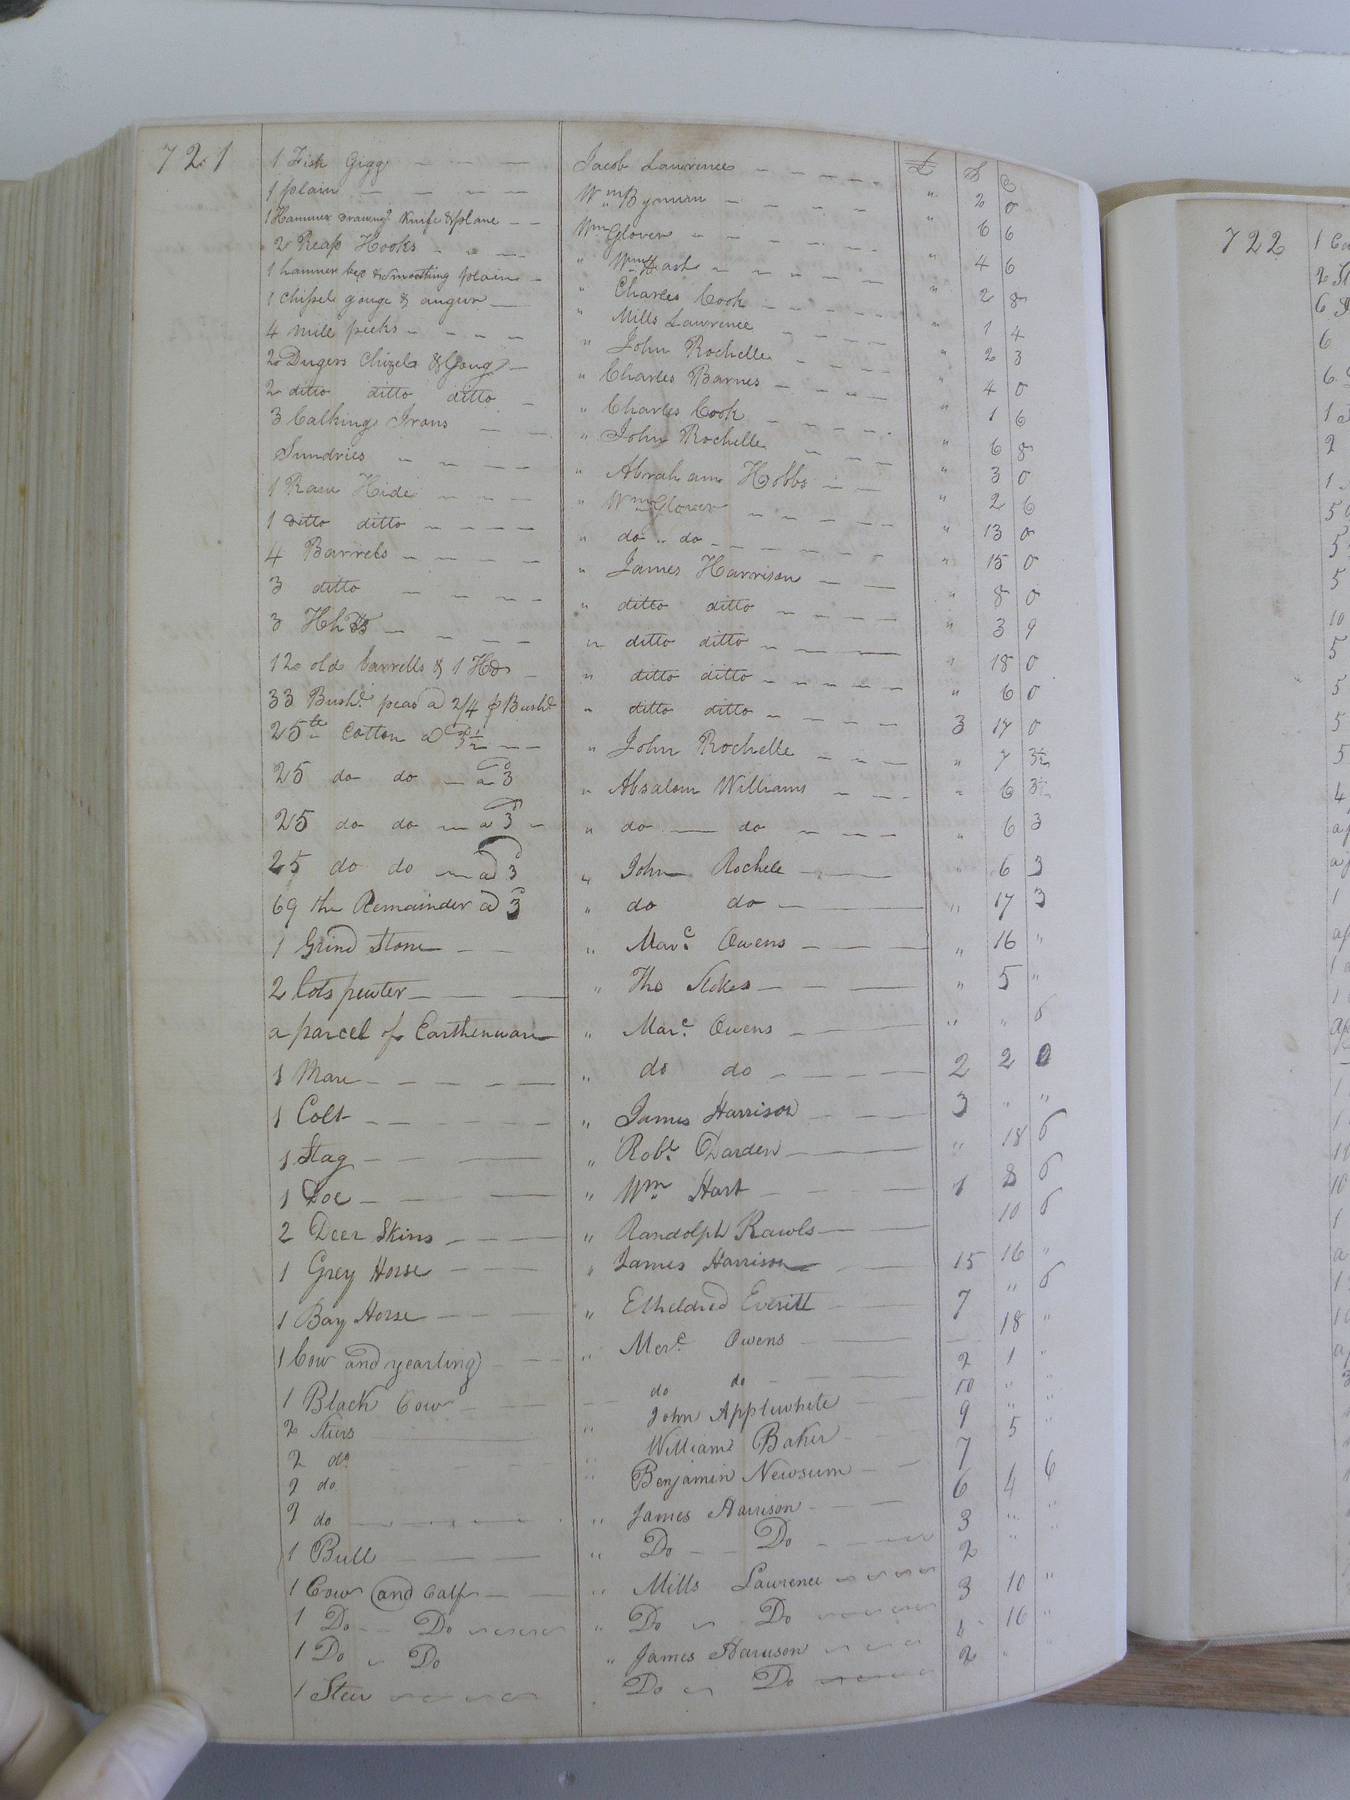 721
£ S D
1 Fish Gigg — — — Jacob Lawrence — — — — " 2 0
1 plain — — — — Wm Bynum — — — — " 6 6
1 Hammer Drawing Knife & plane — — Wm Glover — — — — " 4 6
2 Reap Hooks — — — " Wm Hash — — — — " 2 8
1 hammer & Smoothing plain — " Charles Cook — — — — " 1 4
1 Chissel gouge & auguer — " Mills Lawrence — — — — " 2 3
4 mill pecks — — — — " John Rochelle — — — — " 4 0
2 Dugers Chizels & Goug — " Charles Barnes — — — — " 1 6
2 ditto ditto ditto — " Charles Cook — — — — " 6 8
3 Calking Irons — — " John Rochelle — — — " 3 0
Sundries — — — — " Abraham Hobbs — — " 2 6
1 Raw Hide — — — " Wm Glover — — — — " 13 0
1 ditto ditto — — — — " do " do — — — — " 15 0
4 Barrels — — — — " James Harrison — — " 8 0
3 ditto — — — — " ditto ditto — — — — " 3 9
3 Hhds — — — — " ditto ditto — — — " 18 0
12 old barrells & 1 Hd — " ditto ditto — — — — — " 6 0
33 Bushs peas a 2/4 p Bushl " ditto ditto — — — — 3 17 0
25 lb Cotton a 3½ — — " John Rochelle — — — " 7 3½
25 do do — a 3 " Absalom Williams — — — " 6 3
25 do do — a 3 — " do — do — — — " 6 3
25 do do — a 3 " John Rochele — — " 6 3
69 the Remainder a 3 " do do — — " 17 3
1 Grind Stone — — " Marc. Owens — — — " 16 "
2 Cots pewter — — — " Tho Stokes — — — " 5 "
a parcel of Earthenware " Marc. Owens — — — " " 6
1 Mare — — — — " do do — — — — 2 2 0
1 Colt — — — — — " James Harrison — — — 3 " "
1 Stag — — — " Robt. Darden — — " 18 6
1 Doe — — — " Wm Hart — — — 1 8 6
2 Deer Skins — — — " Randolph Rawls — — 10 6
1 Grey Horse — — — " James Harrison — — 15 16 "
1 Bay Horse — — — " Etheldred Everitt — — 7 " 6
1 Cow and yearling — — " Merc. Owens — — 18 "
1 Black Cow — — — do do — — — 2 1 "
2 Stiers — " John Applewhite — — 10 " "
2 do " William Baker — 9 5 "
2 do " Benjamin Newsum — — 7
2 do — — — — " James Harrison — — — 6 4 6
1 Bull — — — " Do — Do — — — 3 " "
1 Cow and Calf — — " Mills Lawrence 2 "
1 Do — Do " Do Do 3 10 "
1 Do Do " James Harrison 16 "
1 Steer Do Do 2
722